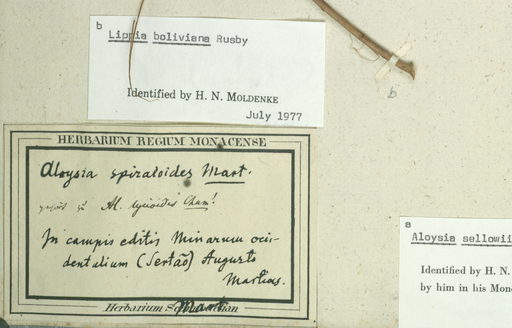 b
Lippia boliviana Rusby
Identified by H. N. MOLDENKE
July 1977
b
HERBARIUM REGIUM MONACENSE
Aloysia spiraeoides Mart.
gehört zu Al. lycioides Cham!
In campis editis Minarum occi-
dentalium (Sertão) Augusto
Martius.
Herbarium Mart
a
Aloysia sellowii
Identified by H. N.
by him in his Mon